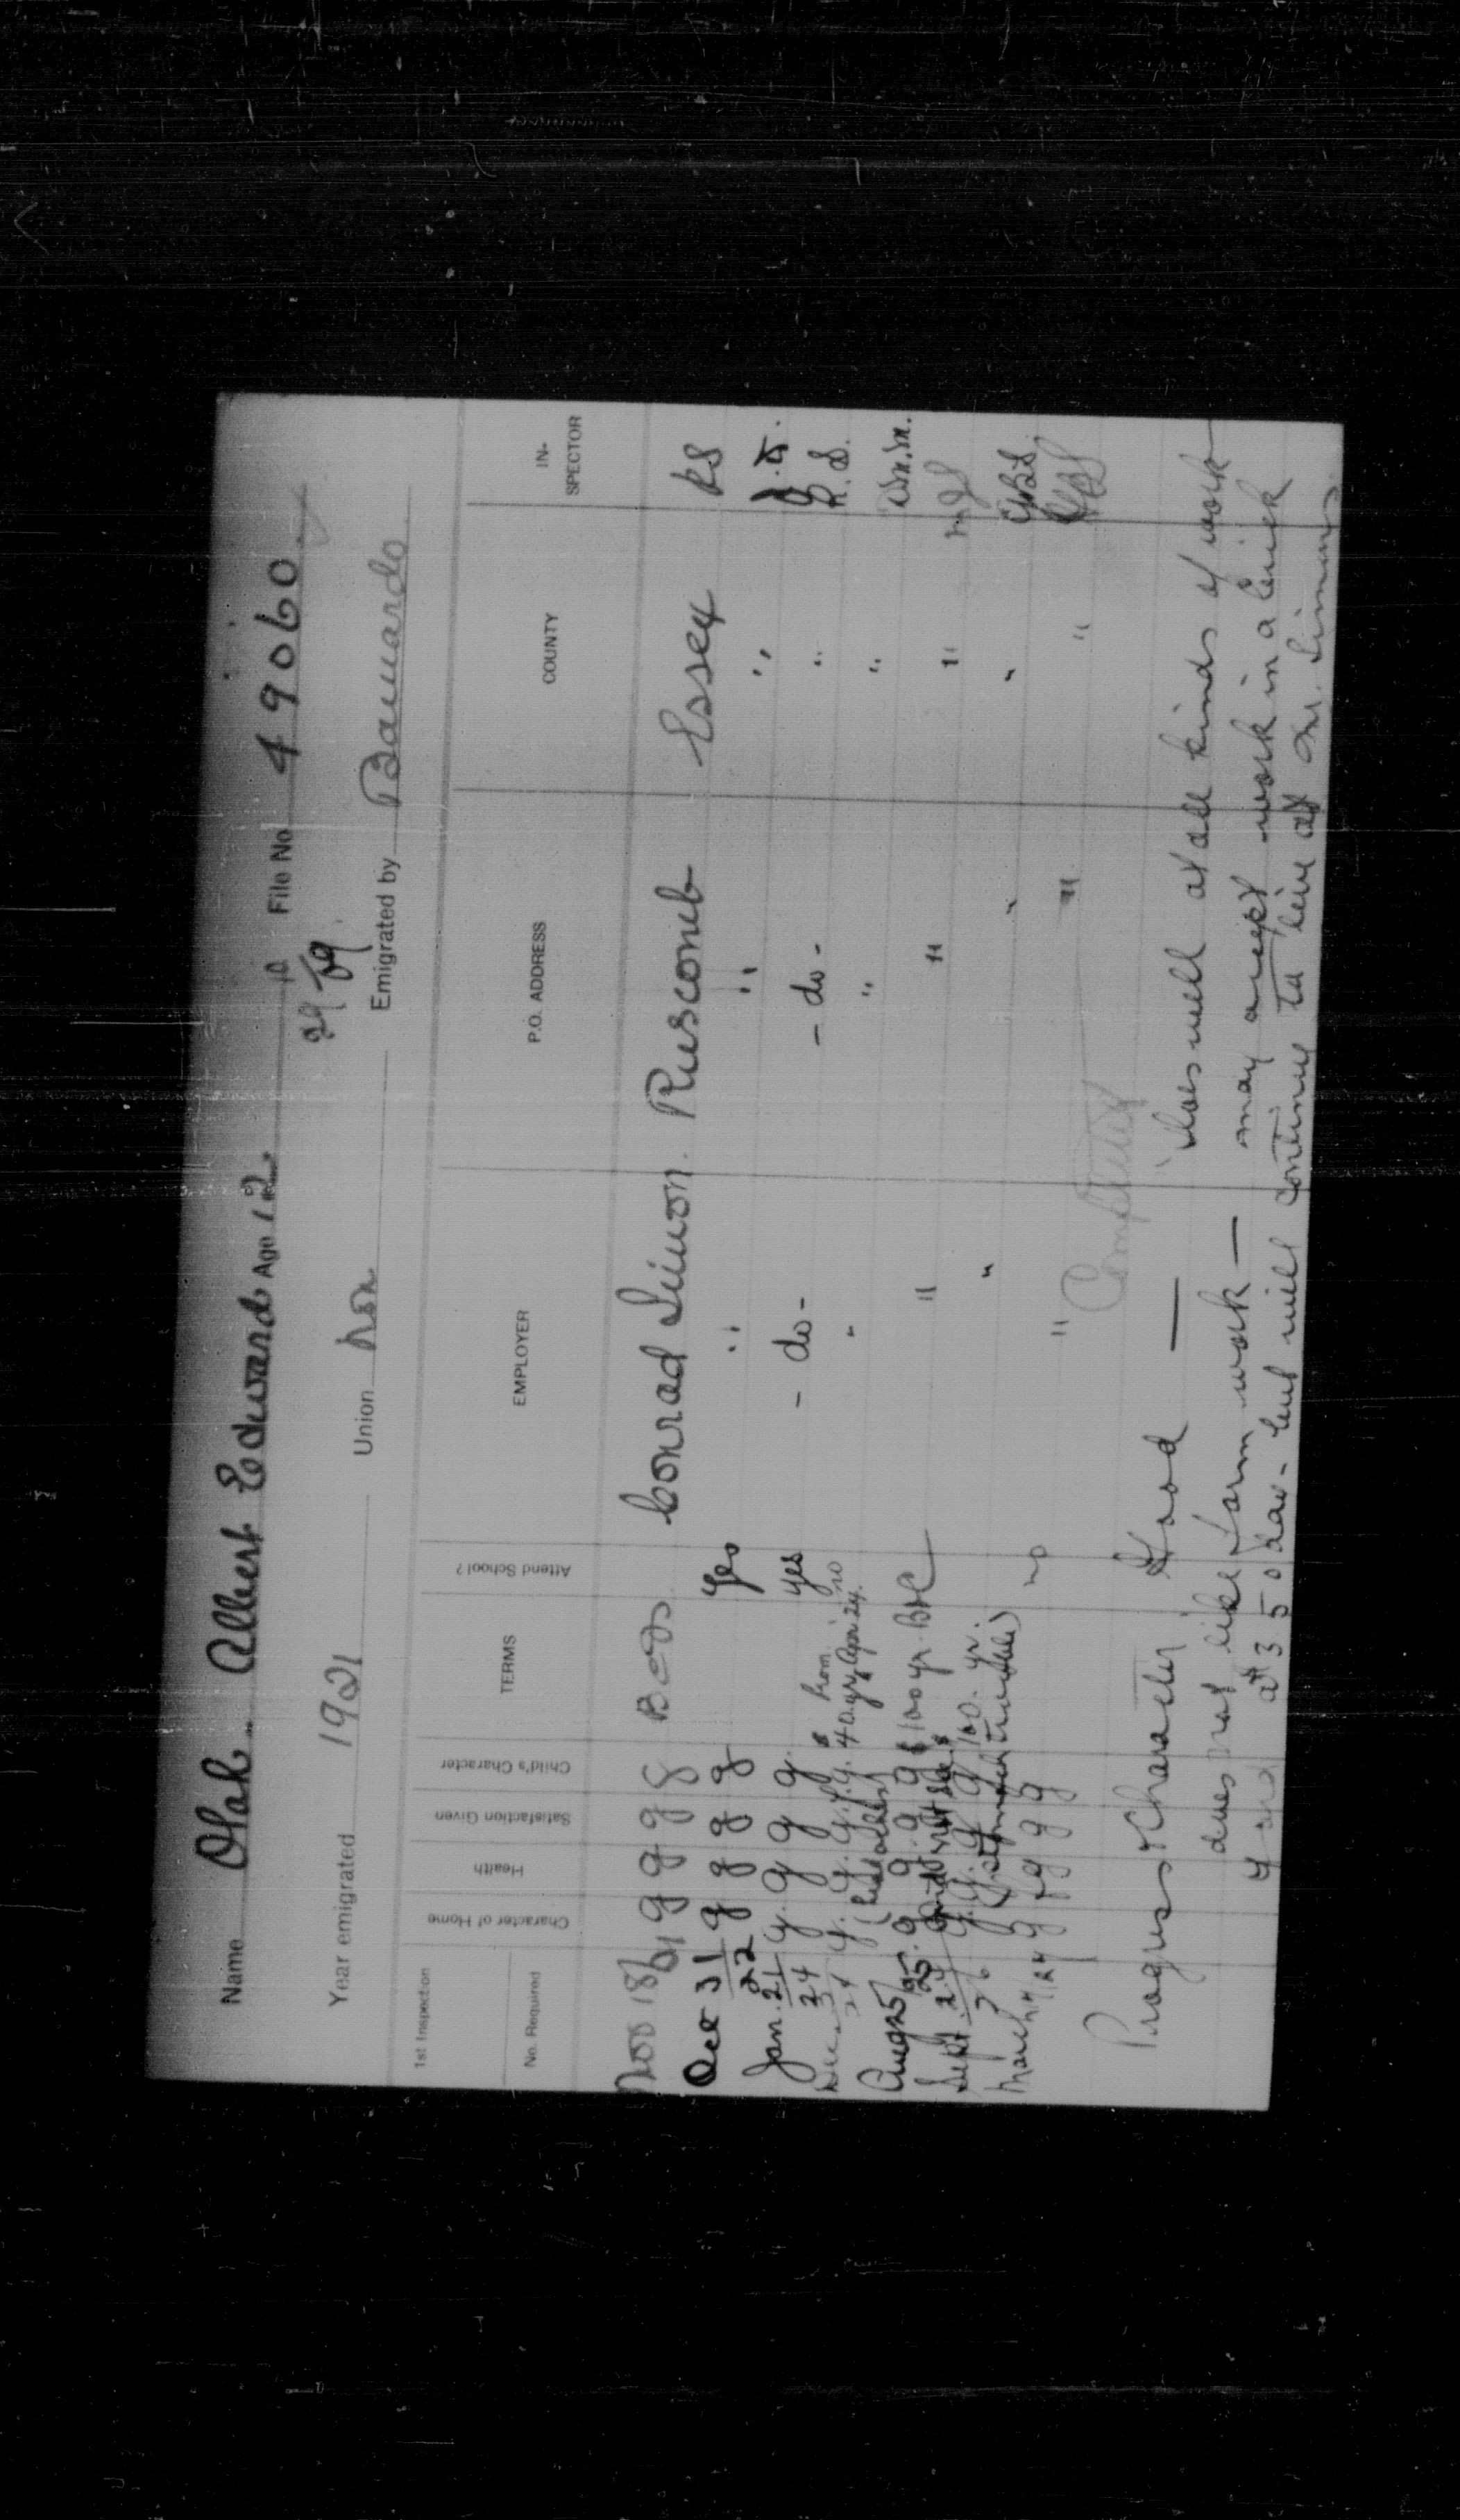 Name Olah Albert Edward Age 12. File No 49060
29/10/09
Year emigrated 1921 Union Non Emigrated by Barnardo
1st Inspection
No. Required Character of Home Health Satisfaction Given Child's Character TERMS Attend School? EMPLOYER P.O. ADDRESS COUNTY IN-SPECTOR
Nov 18/21 g g g g Conrad Simon. Ruscomb Essex
Oct 31 22 g g g g Yes " " "
Jan. 21 24 g. g g g. yes - do - - do - " R.S.
Dec. 24 g. g. from $40 a yr Apr '24. no " " " W.M.M.
Aug 25/25. g g g g $100 yr B+C " " "
Sept. 24 g. g. g g $100. yr. " " "
(stomach trouble)
March 17/27 g g g g no " " "
Completed
Progress & Character Good — does well at all kinds of work —
does not like farm work — may accept work in a brick
yard at 3 50 day - but will continue to live at Mr. Simons